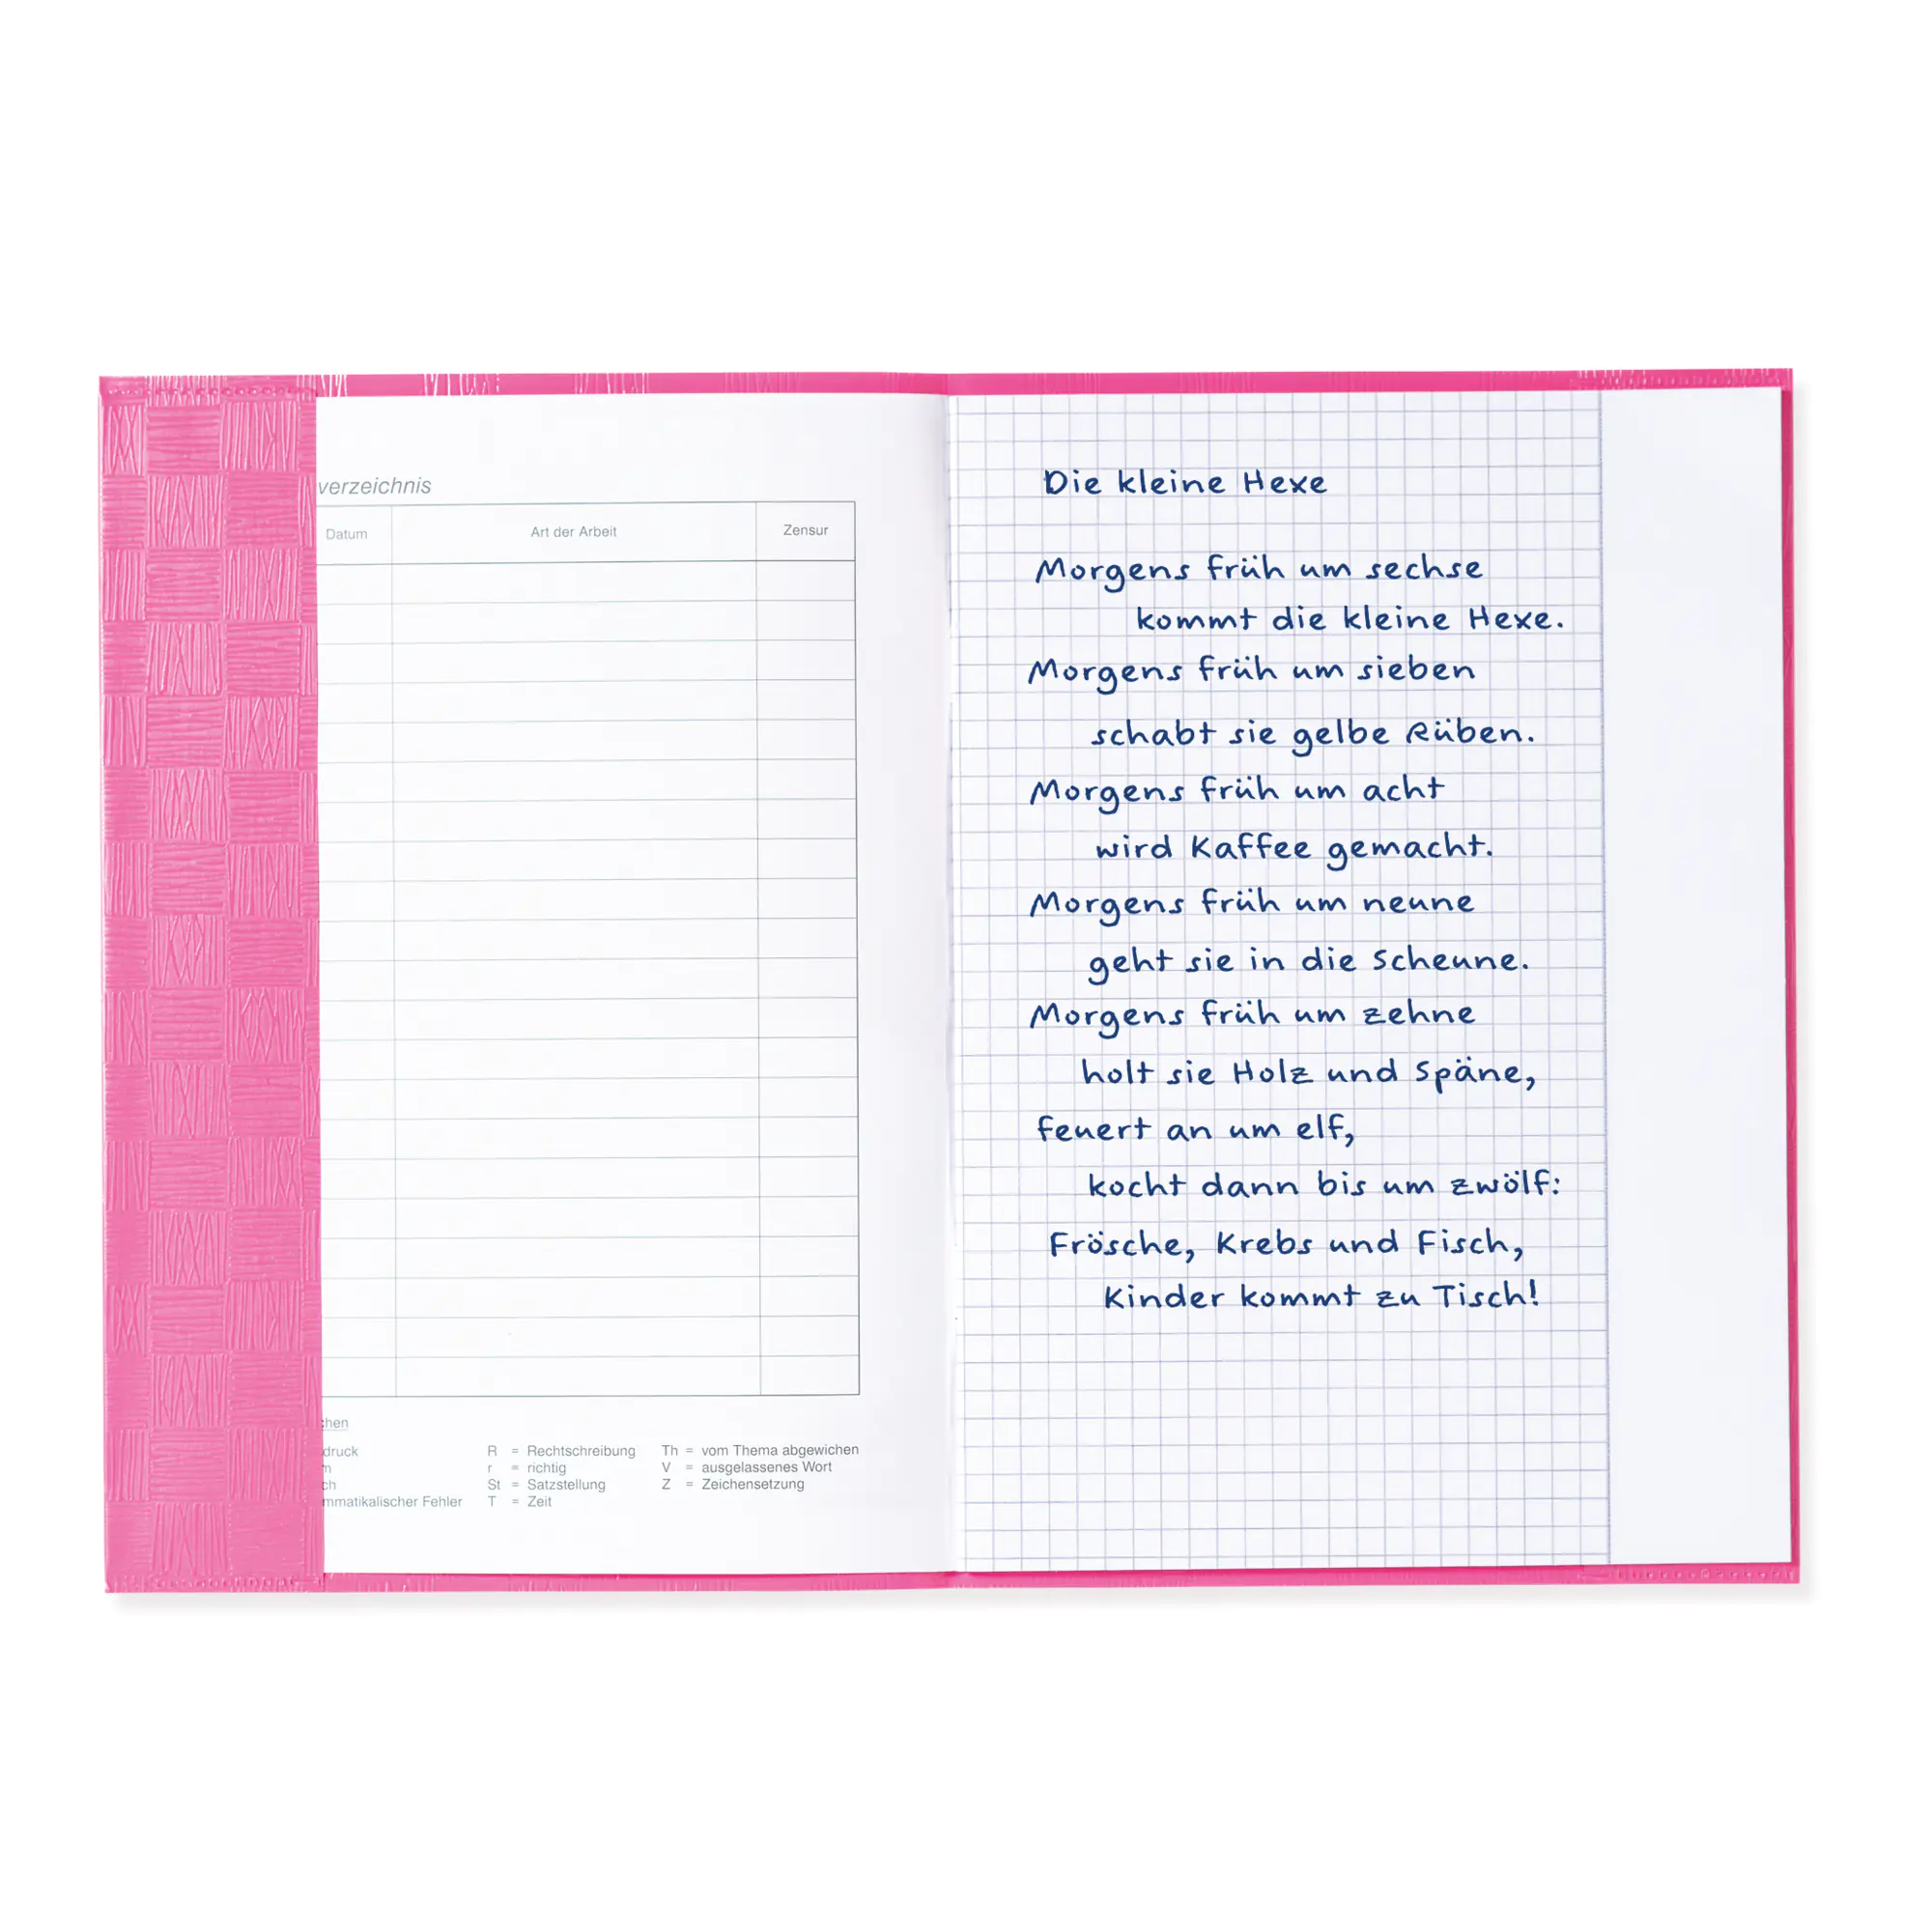 verzeichnis
Datum Art der Arbeit Zensur
R = Rechtschreibung Th = vom Thema abgewichen
r = richtig V = ausgelassenes Wort
St = Satzstellung Z = Zeichensetzung
Fehler T = Zeit
Die kleine Hexe
Morgens früh um sechse
kommt die kleine Hexe.
Morgens früh um sieben
schabt sie gelbe Rüben.
Morgens früh um acht
wird Kaffee gemacht.
Morgens früh um neune
geht sie in die Scheune.
Morgens früh um zehne
holt sie Holz und Späne,
feuert an um elf,
kocht dann bis um zwölf:
Frösche, Krebs und Fisch,
Kinder kommt zu Tisch!